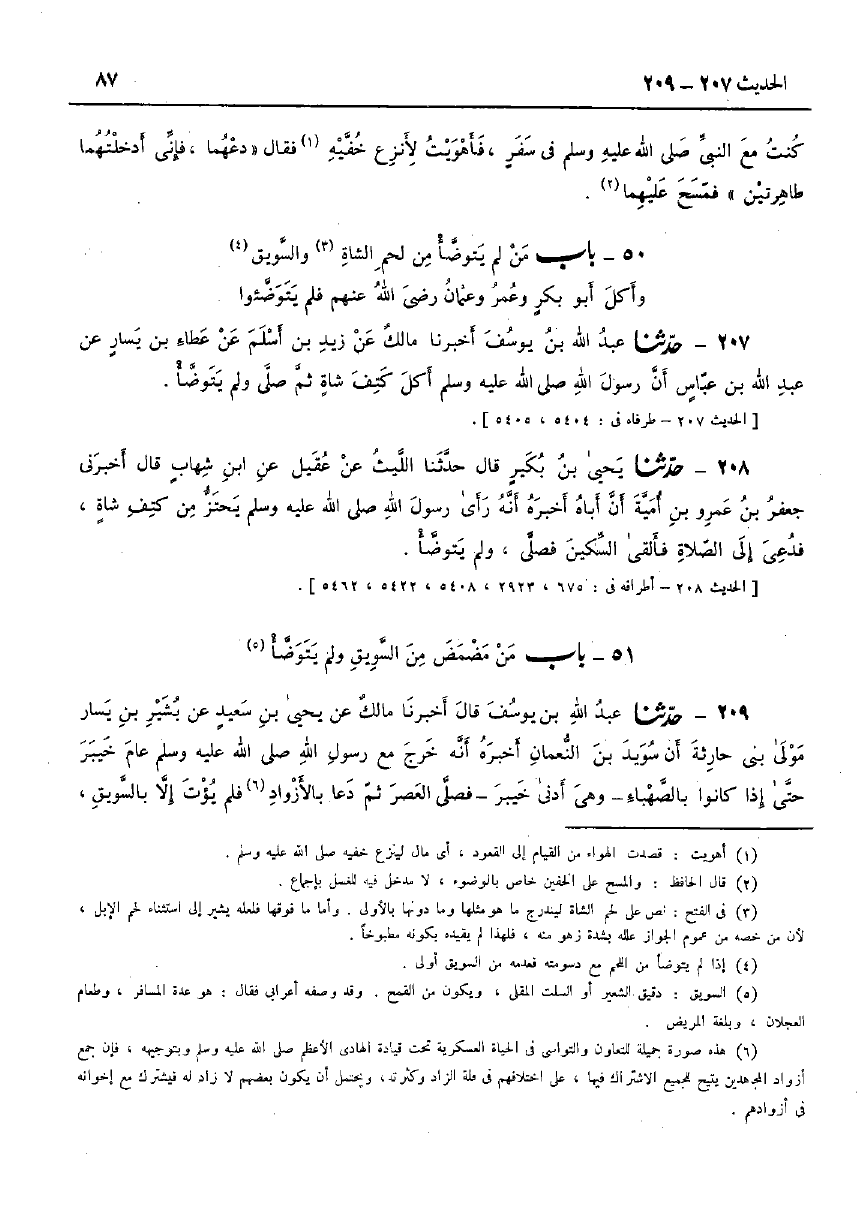 الحديث ٢٠٧ – ٢٠٩ ٨٧
كُنتُ معَ النبيِّ صَلى الله عليهِ وسلم فى سَفَرٍ ، فَأَهْوَيْتُ لِأَنزِع خُفَّيْهِ (١) فقال « دعْهُما ، فإنِّى أدخلْتُهُما
طاهِرتيْن » فمَسَحَ عَلَيْهِما (٢) .
٥٠ – باب مَنْ لم يَتوضَّأْ مِن لحمِ الشاةِ (٣) والسَّويق (٤)
وأكلَ أبو بكرٍ وعُمرُ وعثمانُ رضىَ اللهُ عنهم فلم يَتَوَضَّئوا
٢٠٧ – حدّثنا عبدُ الله بنُ يوسُفَ أخبرنا مالكٌ عَنْ زيدِ بن أَسْلَمَ عَنْ عَطاءِ بن يَسارٍ عن
عبدِ الله بن عبّاسٍ أنَّ رسولَ اللهِ صلى الله عليه وسلم أكلَ كَتِفَ شاةٍ ثمَّ صلَّى ولم يَتَوضَّأْ .
[ الحديث ٢٠٧ – طرفاه فى : ٥٤٠٤ ، ٥٤٠٥ ] .
٢٠٨ – حدّثنا يَحيىٰ بنُ بُكَيرٍ قال حدَّثَنا اللَّيثُ عنْ عُقَيل عنِ ابنِ شِهابٍ قال أخبرَنى
جعفرُ بنُ عَمرِو بنِ أُمَيَّةَ أنَّ أباهُ أخبرَهُ أنَّهُ رَأىٰ رسولَ اللهِ صلى الله عليه وسلم يَحتَزُّ مِن كتِفِ شاةٍ ،
فدُعِىَ إلَى الصَّلاةِ فألقىٰ السِّكينَ فصلَّى ، ولم يَتوضَّأْ .
[ الحديث ٢٠٨ – أطرافه فى : ٦٧٥ ، ٢٩٢٣ ، ٥٤٠٨ ، ٥٤٢٢ ، ٥٤٦٢ ] .
٥١ – باب مَنْ مَضْمَضَ مِنَ السَّوِيقِ ولم يَتَوَضَّأْ (٥)
٢٠٩ – حدّثنا عبدُ اللهِ بن يوسُفَ قالَ أخبرنَا مالكٌ عن يحيىٰ بنِ سَعيدٍ عن بُشَيْرِ بنِ يَسار
مَوْلَىٰ بنى حارِثةَ أن سُوَيدَ بنَ النُّعمانِ أخبرَهُ أنَّه خَرجَ مع رسولِ اللهِ صلى الله عليه وسلم عامَ خَيبَرَ
حتَّىٰ إذا كانوا بالصَّهْباءِ – وهىَ أدنىٰ خَيبرَ – فصلَّى العَصرَ ثمّ دَعا بالأَزْوادِ (٦) فلم يُؤْتَ إلَّا بالسَّويقِ ،
(١) أهويت : قصدت الهواء من القيام إلى القعود ، أى مال لينزع خفيه صلى الله عليه وسلم .
(٢) قال الحافظ : والمسح على الخفين خاص بالوضوء ، لا مدخل فيه للغسل بإجماع .
(٣) فى الفتح : نص على لحم الشاة ليندرج ما هو مثلها وما دونها بالأولى . وأما ما فوقها فلعله يشير إلى استثناء لحم الإبل ،
لأن من خصه من عموم الجواز علله بشدة زهو منه ، فلهذا لم يقيده بكونه مطبوخاً .
(٤) إذا لم يتوضأ من اللحم مع دسومته فعدمه من السويق أولى .
(٥) السويق : دقيق الشعير أو السلت المقلى ، ويكون من القمح . وقد وصفه أعرابى فقال : هو عدة المسافر ، وطعام
العجلان ، وبلغة المريض .
(٦) هذه صورة جميلة للتعاون والتواسى فى الحياة العسكرية تحت قيادة الهادى الأعظم صلى الله عليه وسلم وبتوجيهه ، فإن جمع
أزواد المجاهدين يتيح للجميع الاشتراك فيها ، على اختلافهم فى قلة الزاد وكثرته ، ويحتمل أن يكون بعضهم لا زاد له فيشترك مع إخوانه
فى أزوادهم .